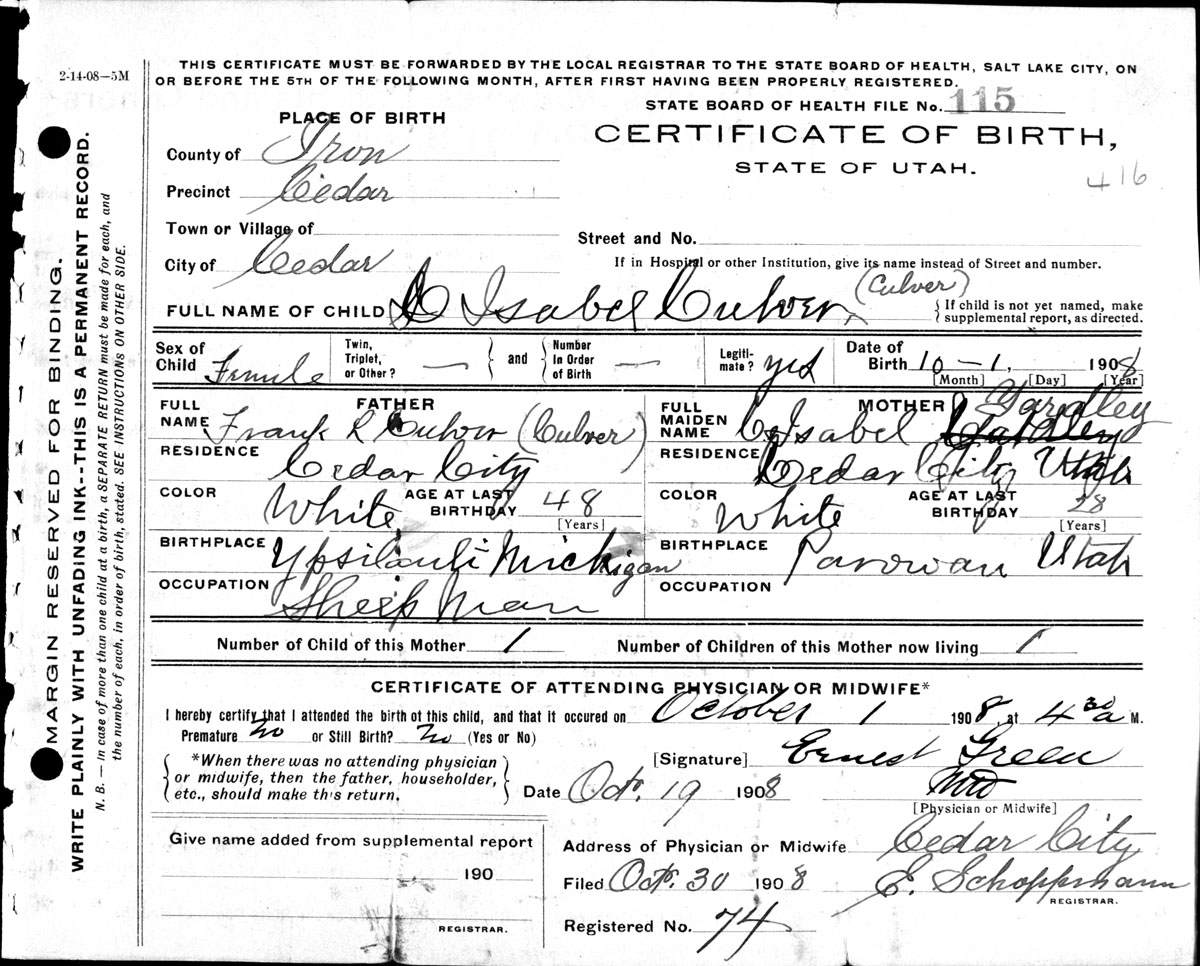 2-14-08—5M
THIS CERTIFICATE MUST BE FORWARDED BY THE LOCAL REGISTRAR TO THE STATE BOARD OF HEALTH, SALT LAKE CITY, ON
OR BEFORE THE 5TH OF THE FOLLOWING MONTH, AFTER FIRST HAVING BEEN PROPERLY REGISTERED.
STATE BOARD OF HEALTH FILE No. 115
PLACE OF BIRTH
CERTIFICATE OF BIRTH,
STATE OF UTAH.
416
County of Iron
Precinct Cedar
Town or Village of
Street and No.
City of Cedar
If in Hospital or other Institution, give its name instead of Street and number.
FULL NAME OF CHILD Isabel Culver (Culver)
{If child is not yet named, make
supplemental report, as directed.
Sex of Child Female
Twin, Triplet, or Other? —
and
Number In Order of Birth —
Legiti-mate? yes
Date of Birth 10 — 1, 1908
[Month] [Day] [Year]
FATHER
FULL NAME Frank R Culver (Culver)
RESIDENCE Cedar City
COLOR White
AGE AT LAST BIRTHDAY 48
[Years]
BIRTHPLACE Ypsilanti Michigan
OCCUPATION Sheep Man
MOTHER
FULL MAIDEN NAME Isabel Yardley
RESIDENCE Cedar City Utah
COLOR White
AGE AT LAST BIRTHDAY 28
[Years]
BIRTHPLACE Parowan Utah
OCCUPATION
Number of Child of this Mother 1
Number of Children of this Mother now living 1
CERTIFICATE OF ATTENDING PHYSICIAN OR MIDWIFE*
I hereby certify that I attended the birth of this child, and that it occured on October 1 1908, at 4 30 a M.
Premature No or Still Birth? No (Yes or No)
[Signature] Ernest Green
MD
[Physician or Midwife]
{*When there was no attending physician
or midwife, then the father, householder,
etc., should make this return.}
Date Oct. 19 1908
Give name added from supplemental report
190
REGISTRAR.
Address of Physician or Midwife Cedar City
Filed Oct. 30 1908
E. Schoppmann
REGISTRAR.
Registered No. 74
MARGIN RESERVED FOR BINDING.
WRITE PLAINLY WITH UNFADING INK--THIS IS A PERMANENT RECORD.
N. B. — In case of more than one child at a birth, a SEPARATE RETURN must be made for each, and
the number of each, in order of birth, stated. SEE INSTRUCTIONS ON OTHER SIDE.